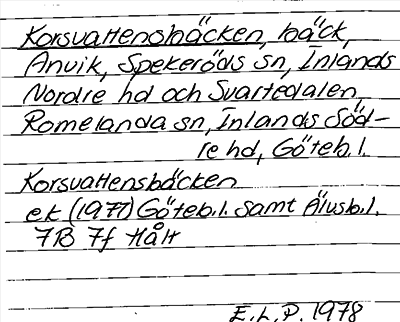 Korsvattensbäcken, bäck,
Anvik, Spekeröds sn, Inlands
Nordre hd och Svartedalen,
Romelanda sn, Inlands Söd-
re hd, Göteb.l.
Korsvattensbäcken
ek (1977) Göteb.l. samt Älvsb.l.
7B 7f Hålt
E.L.P. 1978